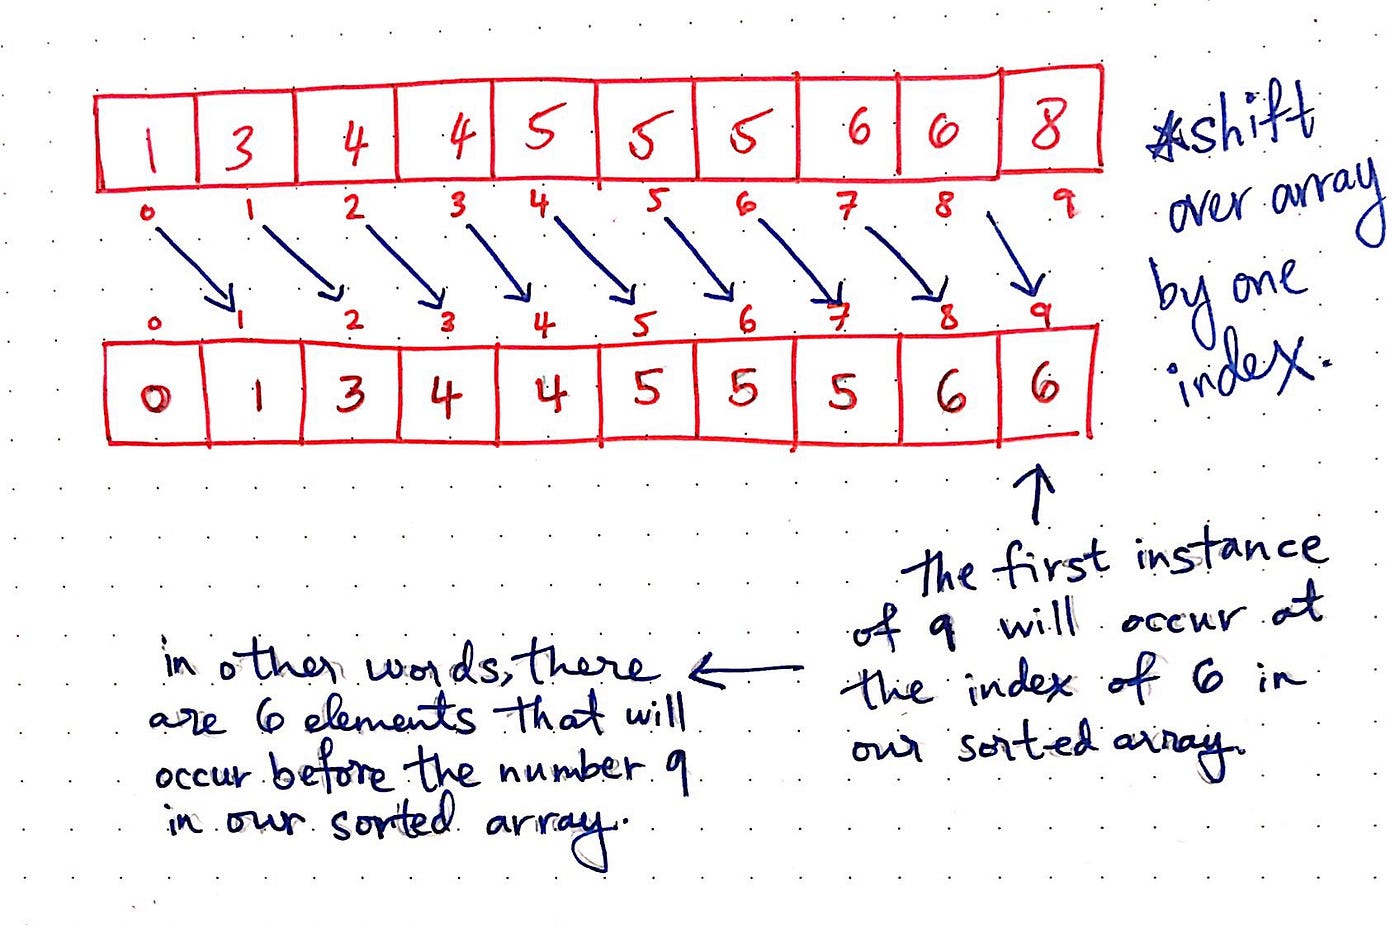 1 3 4 4 5 5 5 6 6 8
0 1 2 3 4 5 6 7 8 9
0 1 2 3 4 5 6 7 8 9
0 1 3 4 4 5 5 5 6 6
*shift
over array
by one
index.
the first instance
of 9 will occur at
the index of 6 in
our sorted array.
in other words, there
are 6 elements that will
occur before the number 9
in our sorted array.